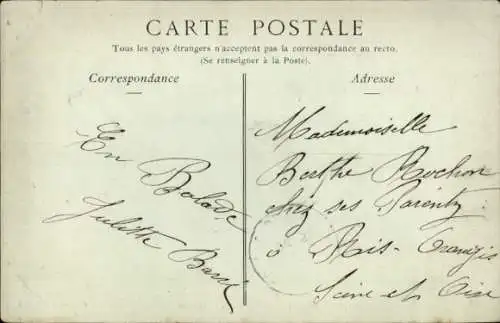 CARTE POSTALE
Tous les pays étrangers n'acceptent pas la correspondance au recto.
(Se renseigner à la Poste).
Correspondance
En
Balade
Juliette
Adresse
Mademoiselle
Berthe Rochon
chez ses Parents
à Ris-Orangis
Seine et Oise